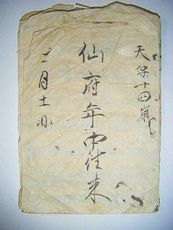 天保十四歳
仙府年中往来
十一月十一日